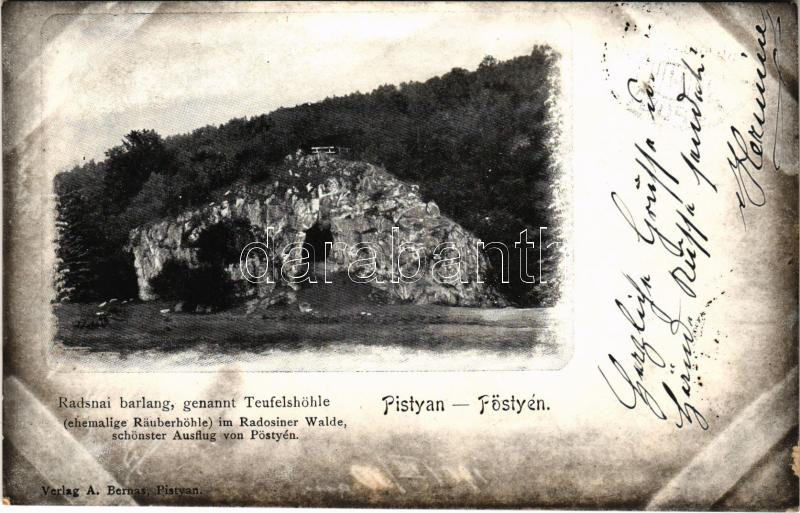 Radsnai barlang, genannt Teufelshöhle
(ehemalige Räuberhöhle) im Radosiner Walde,
schönster Ausflug von Pöstyén.
Pistyan — Föstyén.
Verlag A. Bernas, Pistyan.
darabanth.com
Herzliche Grüsse u.
Küsse sendet
Hermine